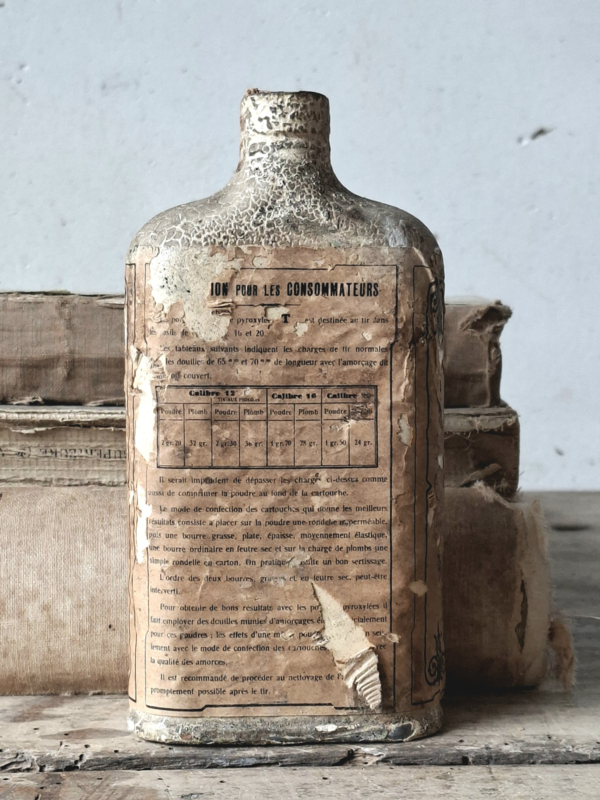 ION POUR LES CONSOMMATEURS
pyroxylée T est destinée au tir dans
16 et 20
Les tableaux suivants indiquent les charges de tir normales
les douilles de 65 m/m et 70 m/m de longueur avec l'amorçage du
couvert.
Calibre 12 Calibre 16 Calibre
Poudre Plomb Poudre Plomb Poudre Plomb Poudre
2 gr. 20 32 gr. 36 gr. 1 gr. 78 28 gr. 1 gr. 50 24 gr.
Il serait imprudent de dépasser les charges ci-dessus comme
aussi de comprimer la poudre au fond de la cartouche.
Le mode de confection des cartouches qui donne les meilleurs
résultats consiste à placer sur la poudre une rondelle imperméable,
puis une bourre grasse, plate, épaisse, moyennement élastique,
une bourre ordinaire en feutre sec et sur la charge de plombs une
simple rondelle en carton. On pratique ensuite un bon sertissage.
L'ordre des deux bourres, grasse et en feutre sec, peut-être
interverti.
Pour obtenir de bons résultats avec les pyroxylées il
faut employer des douilles munies d'amorçages
pour ces poudres ; les effets d'une
avec le mode de confection des cartouches
la qualité des amorces.
Il est recommandé de procéder au nettoyage de
promptement possible après le tir.